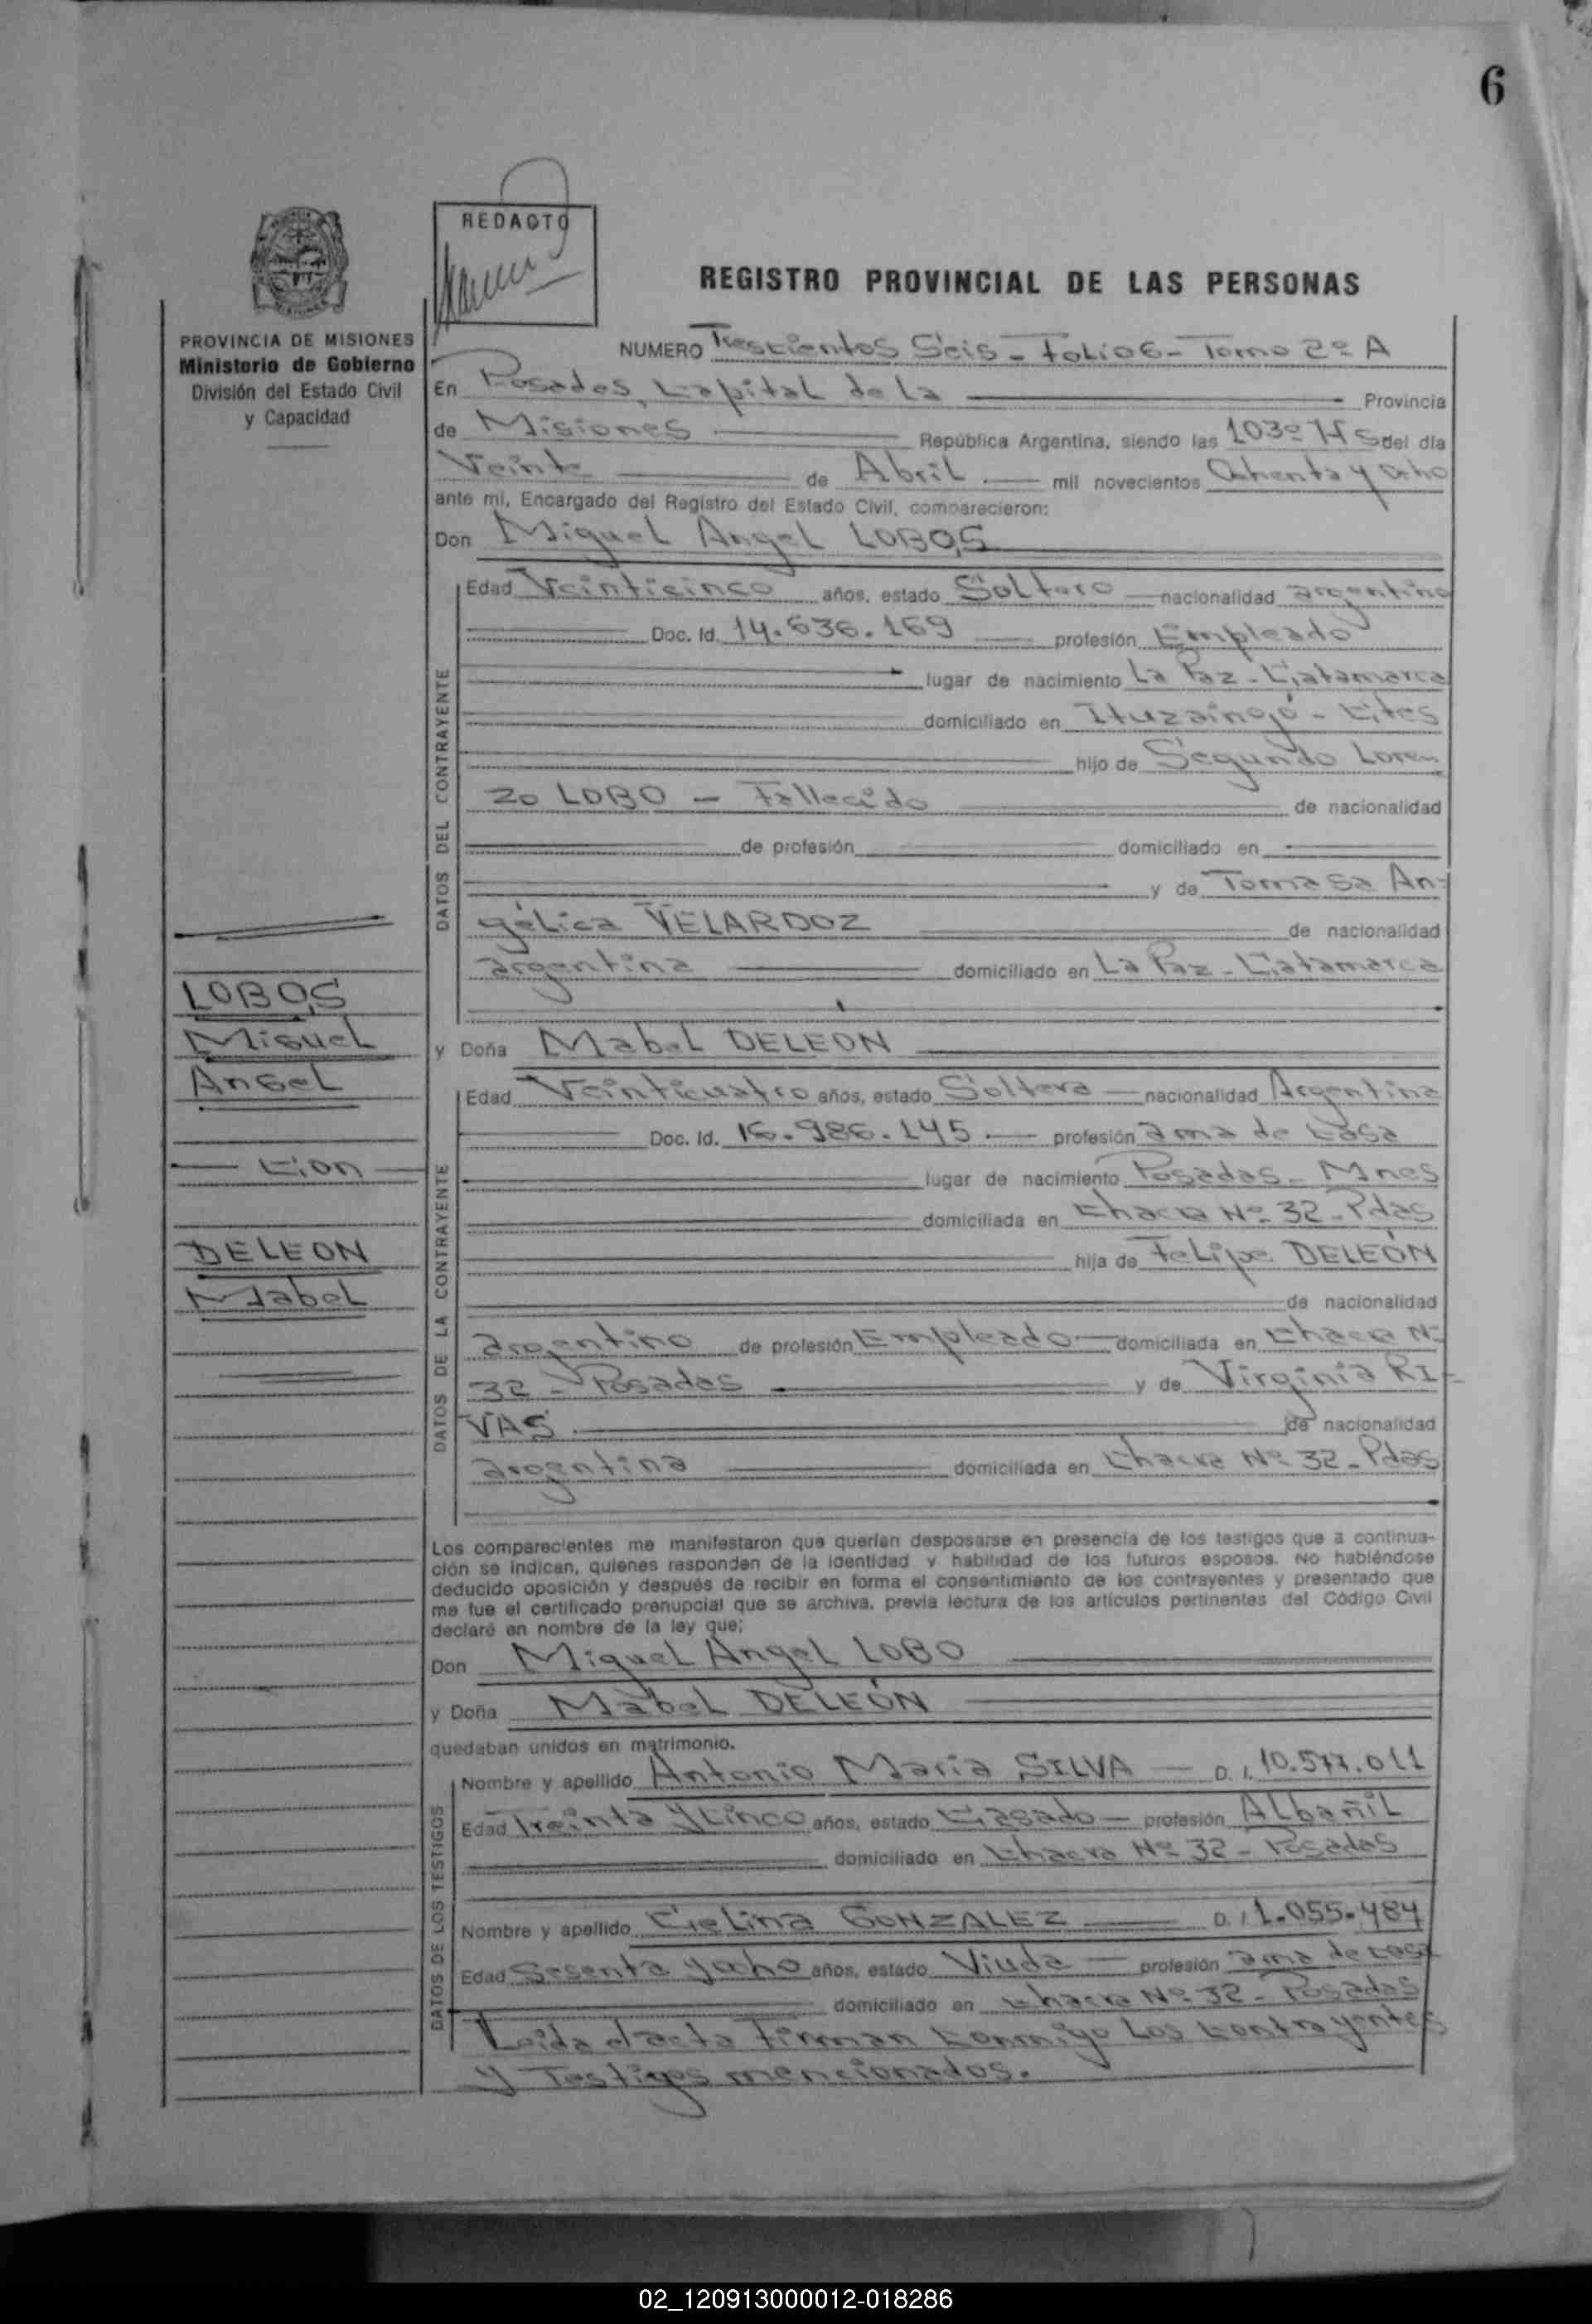 6
REDACTO
REGISTRO PROVINCIAL DE LAS PERSONAS
PROVINCIA DE MISIONES
Ministerio de Gobierno
División del Estado Civil
y Capacidad
NUMERO Trescientos Seis - Folio 6 - Tomo 2º A
En Posadas, Capital de la Provincia
de Misiones República Argentina, siendo las 10 3º Hs del día
Veinte de Abril mil novecientos Ochenta y ocho
ante mí, Encargado del Registro del Estado Civil, comparecieron:
Don Miguel Angel LOBOS
DATOS DEL CONTRAYENTE
Edad Veinticinco años, estado Soltero nacionalidad argentino
Doc. Id. 14.636.169 profesión Empleado
lugar de nacimiento La Paz - Catamarca
domiciliado en Ituzaingó - Ctes
hijo de Segundo Loren
zo LOBO - Fallecido de nacionalidad
de profesión domiciliado en
y de Tomasa An-
gélica VELARDOZ de nacionalidad
argentina domiciliado en La Paz - Catamarca
LOBOS
Miguel
Angel
Con
DELEON
Mabel
y Doña Mabel DELEON
DATOS DE LA CONTRAYENTE
Edad Veinticuatro años, estado Soltera nacionalidad Argentina
Doc. Id. 16.986.145 profesión ama de casa
lugar de nacimiento Posadas - Mnes
domiciliada en Chacra Nº 32 - Pdas
hija de Felipe DELEÓN
de nacionalidad
argentino de profesión Empleado domiciliada en Chacra Nº
32 - Posadas y de Virginia RI-
VAS de nacionalidad
argentina domiciliada en Chacra Nº 32 - Pdas
Los comparecientes me manifestaron que querían desposarse en presencia de los testigos que a continua-
ción se indican, quienes responden de la identidad y habilidad de los futuros esposos. No habiéndose
deducido oposición y después de recibir en forma el consentimiento de los contrayentes y presentado que
me fue el certificado prenupcial que se archiva, previa lectura de los artículos pertinentes del Código Civil
declaré en nombre de la ley que:
Don Miguel Angel LOBO
y Doña Mabel DELEÓN
quedaban unidos en matrimonio.
DATOS DE LOS TESTIGOS
Nombre y apellido Antonio Maria SILVA D.I. 10.577.011
Edad Treinta y Cinco años, estado Casado profesión Albañil
domiciliado en Chacra Nº 32 - Posadas
Nombre y apellido Celina GONZALEZ D.I 1.055.484
Edad Sesenta y ocho años, estado Viuda profesión ama de casa
domiciliado en Chacra Nº 32 - Posadas
Leída el acta Firman Conmigo Los Contrayentes
y Testigos mencionados.
02_120913000012-018286